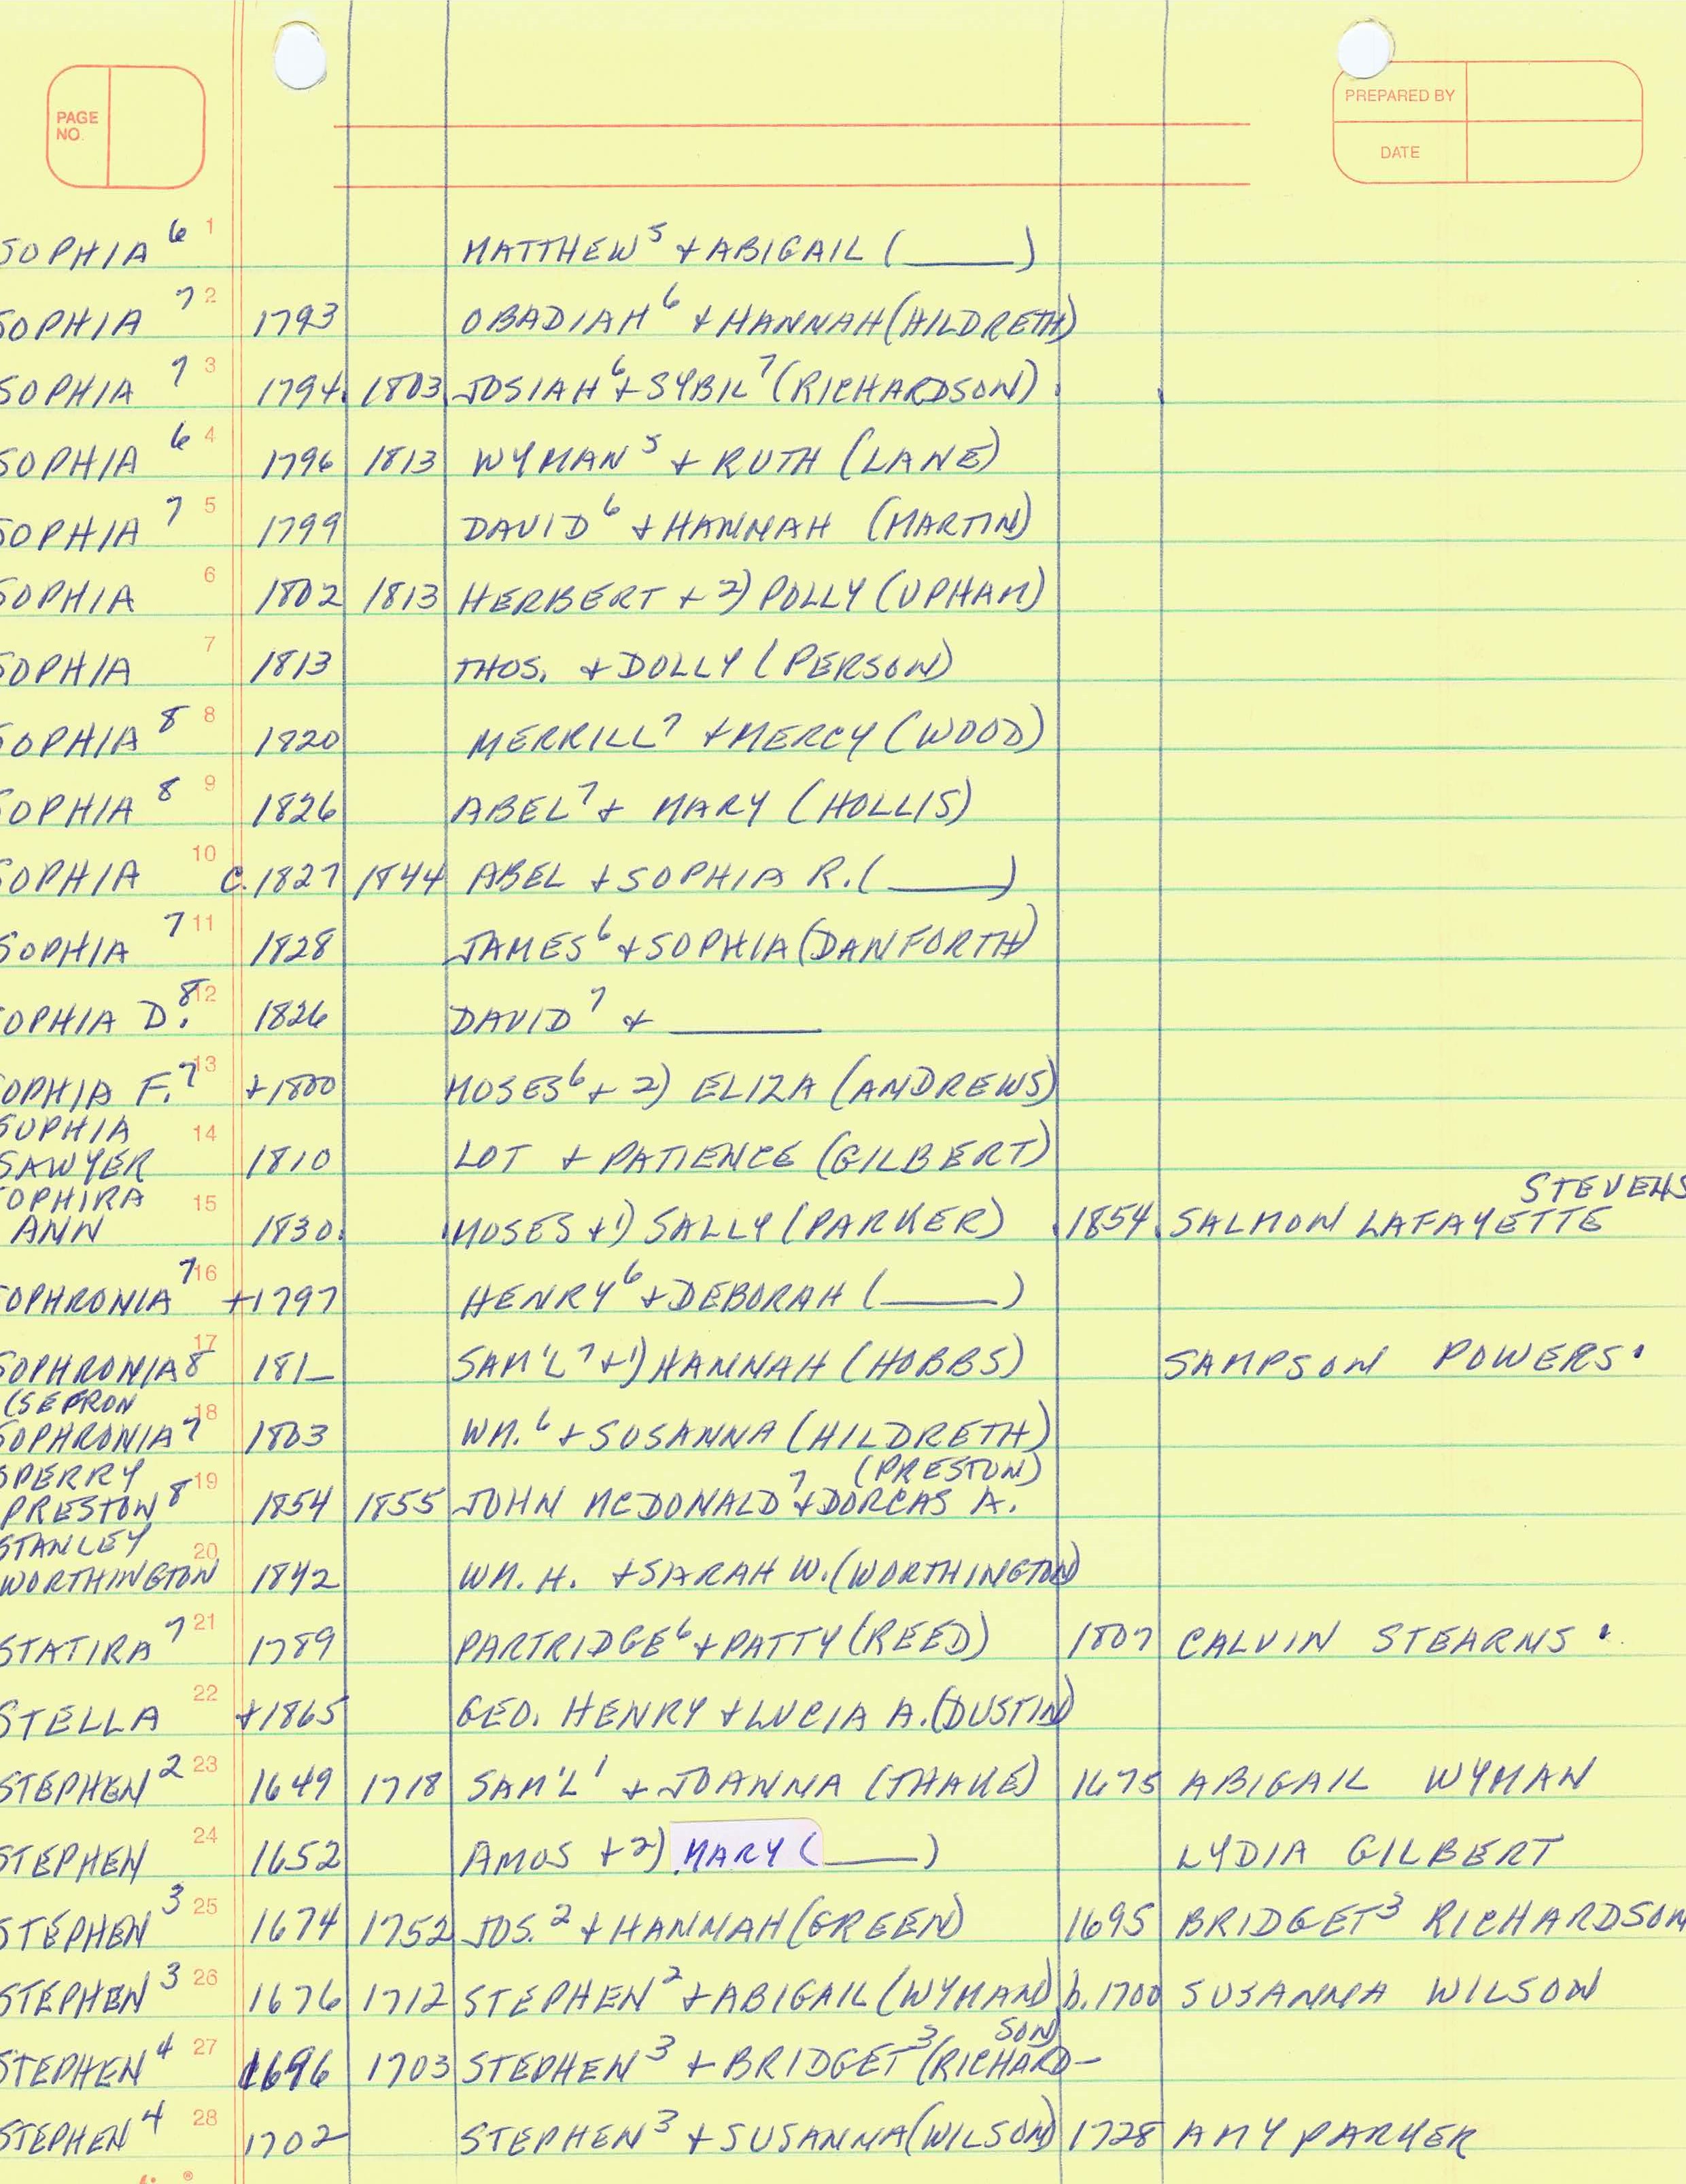 PAGE NO.
PREPARED BY
DATE
SOPHIA 6 1 MATTHEW 5 + ABIGAIL (____)
SOPHIA 7 2 1793 OBADIAH 6 + HANNAH (HILDRETH)
SOPHIA 7 3 1794 1803 JOSIAH 6 + SYBIL 7 (RICHARDSON)
SOPHIA 6 4 1796 1813 WYMAN 5 + RUTH (LANE)
SOPHIA 7 5 1799 DAVID 6 + HANNAH (MARTIN)
SOPHIA 6 1802 1813 HERBERT + 2) POLLY (UPHAM)
SOPHIA 7 1813 THOS. + DOLLY (PERSON)
SOPHIA 8 8 1820 MERRILL 7 + MERCY (WOOD)
SOPHIA 8 9 1826 ABEL 7 + MARY (HOLLIS)
SOPHIA 10 C. 1827 1844 ABEL + SOPHIA R. (____)
SOPHIA 7 11 1828 JAMES 6 + SOPHIA (DANFORTH)
SOPHIA D. 8 12 1826 DAVID 7 + ____
SOPHIA F. 7 13 +1800 MOSES 6 + 2) ELIZA (ANDREWS)
SOPHIA 14
SAWYER 1810 LOT + PATIENCE (GILBERT)
SOPHIRA 15 STEVENS
ANN 1830 MOSES + 1) SALLY (PARKER) 1854 SALMON LAFAYETTE
SOPHRONIA 7 16 +1797 HENRY 6 + DEBORAH (____)
SOPHRONIA 8 17 181_ SAM'L 7 + 1) HANNAH (HOBBS) SAMPSON POWERS.
(SEFRON
SOPHRONIA 7 18 1803 WM. 6 + SUSANNA (HILDRETH)
SPERRY 19 (PRESTON)
PRESTON 8 1854 1855 JOHN MCDONALD 7 + DORCAS A.
STANLEY 20
WORTHINGTON 1842 WM. H. + SARAH W. (WORTHINGTON)
STATIRA 7 21 1789 PARTRIDGE 6 + PATTY (REED) 1807 CALVIN STEARNS.
STELLA 22 +1865 GEO. HENRY + LUCIA A. (DUSTIN)
STEPHEN 2 23 1649 1718 SAM'L 1 + JOANNA (THAKE) 1675 ABIGAIL WYMAN
STEPHEN 24 1652 AMOS + 2) MARY (____) LYDIA GILBERT
STEPHEN 3 25 1674 1752 JOS. 2 + HANNAH (GREEN) 1695 BRIDGET 3 RICHARDSON
STEPHEN 3 26 1676 1712 STEPHEN 2 + ABIGAIL (WYMAN) b. 1700 SUSANNA WILSON
SON)
STEPHEN 4 27 1696 1703 STEPHEN 3 + BRIDGET 3 (RICHARD-
STEPHEN 4 28 1702 STEPHEN 3 + SUSANNA (WILSON) 1728 AMY PARKER